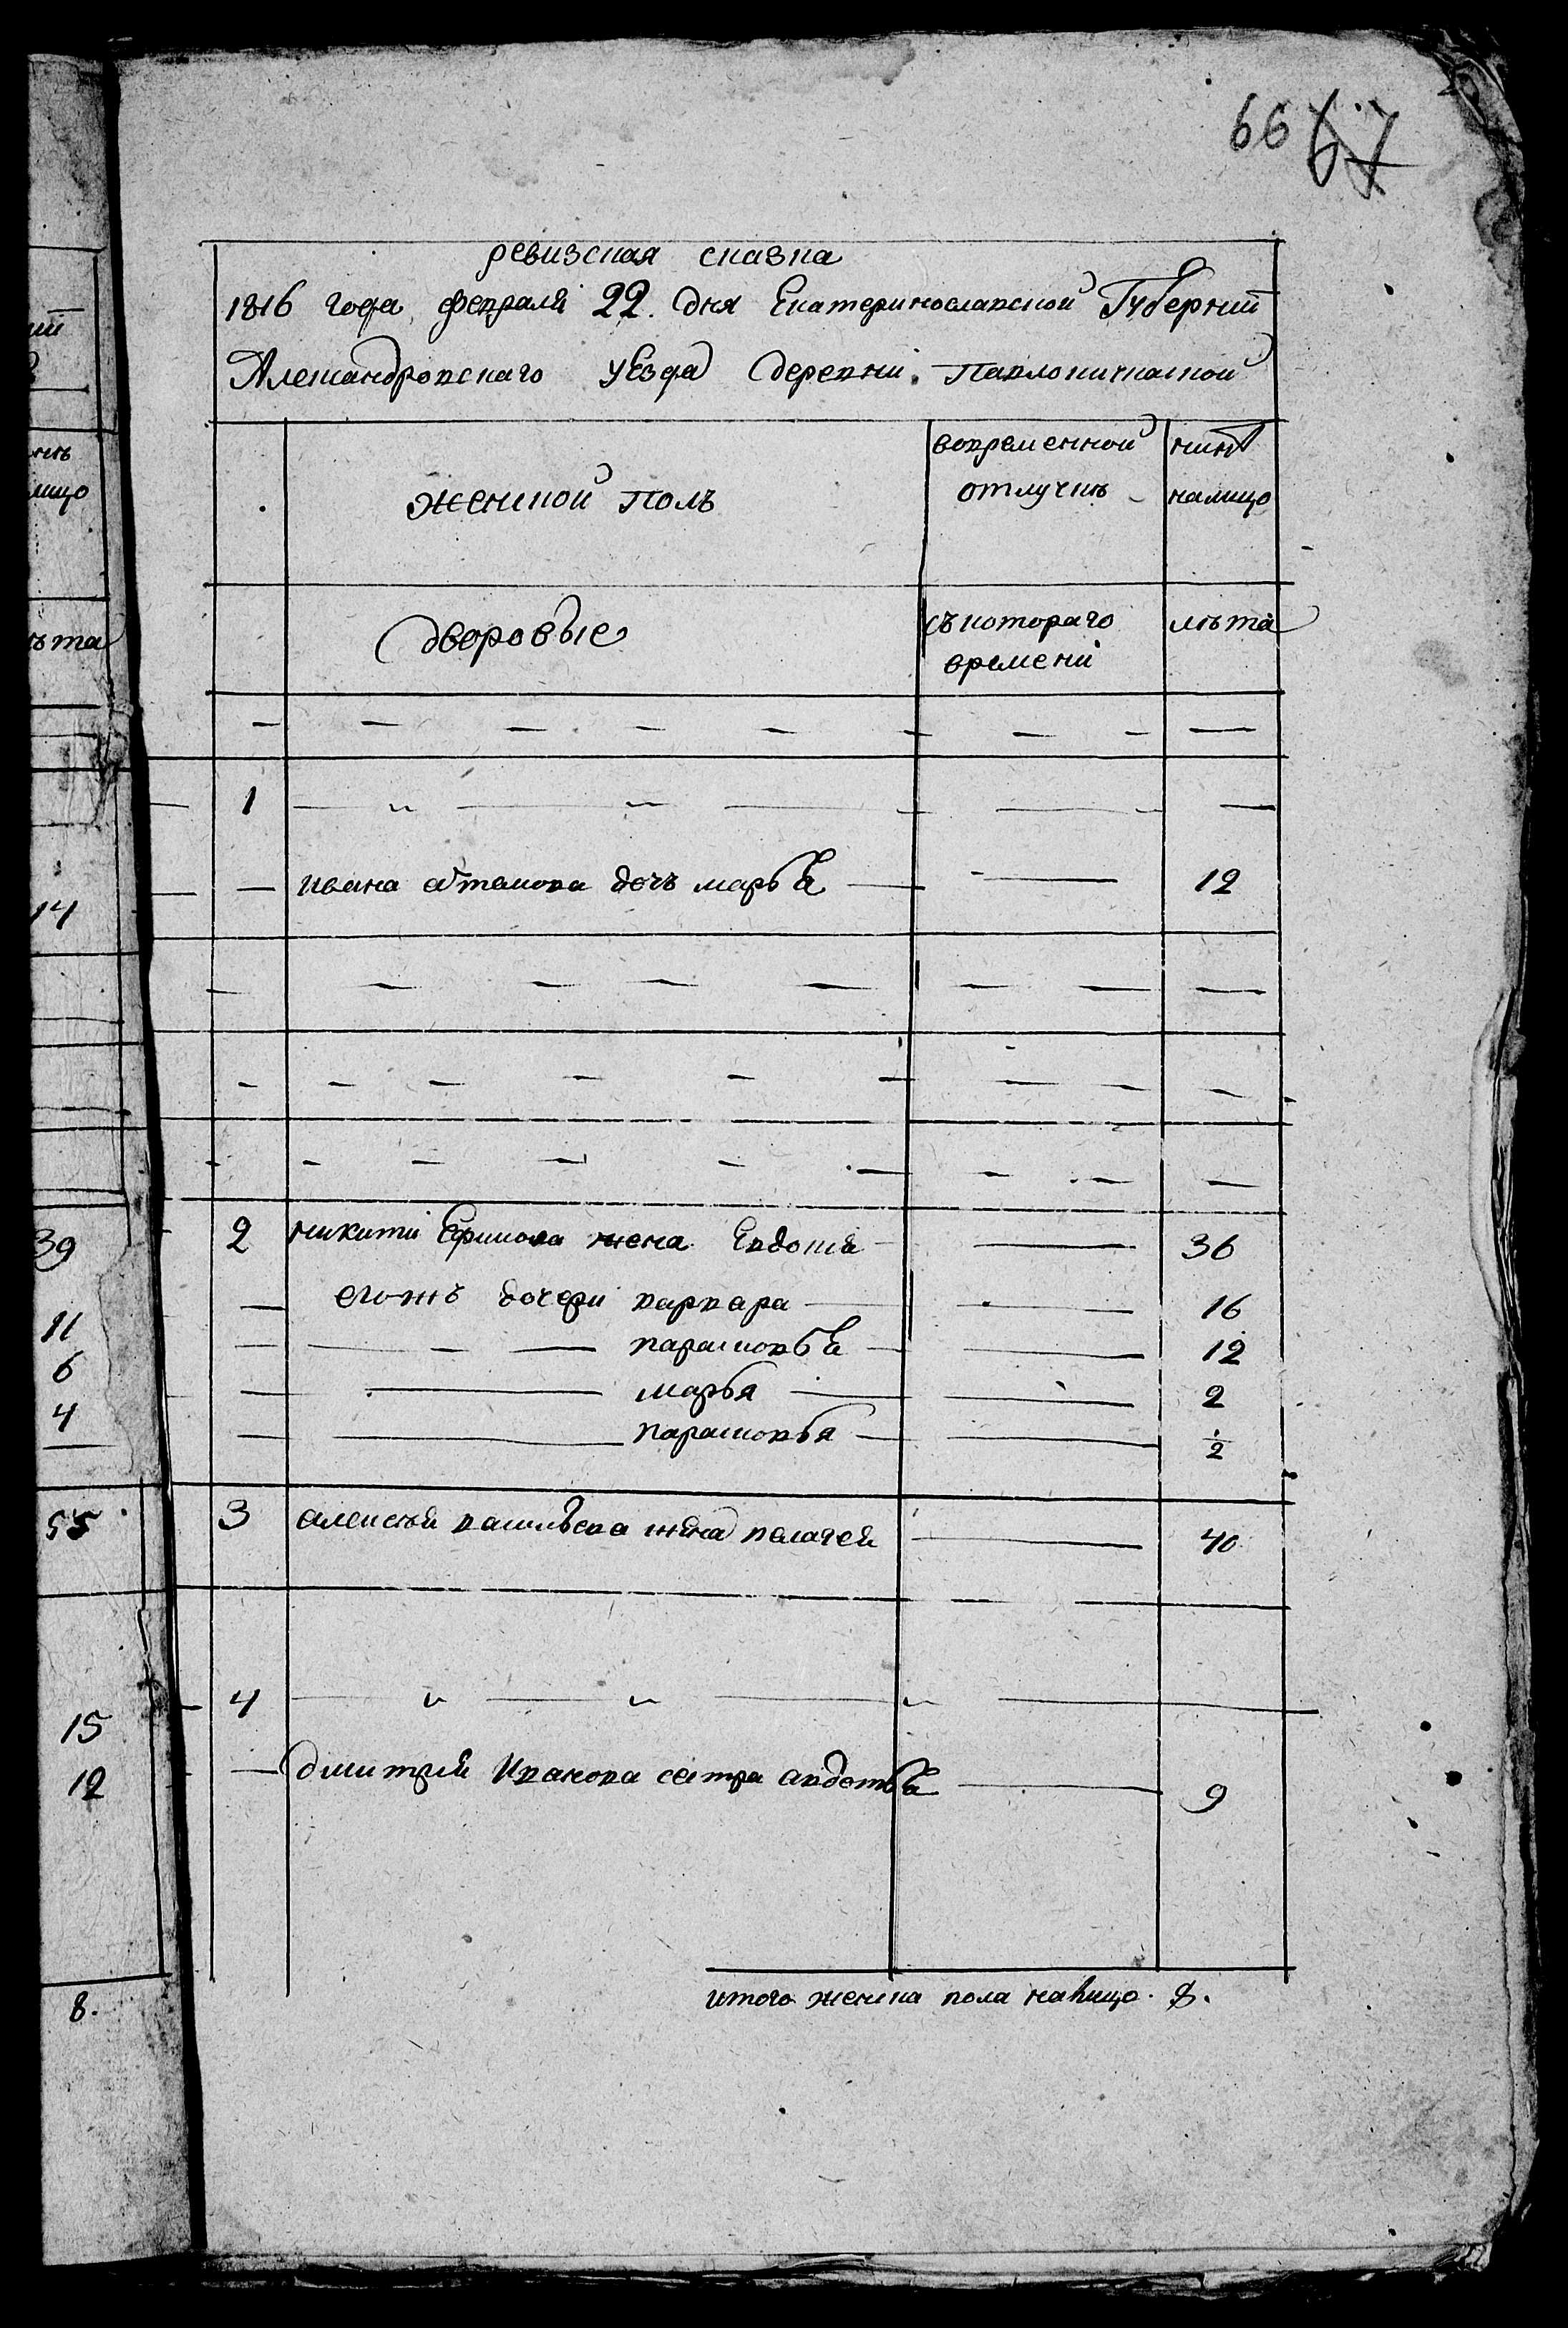 66 67
ревизская сказка
1816 года февраля 22. дня Екатеринославской Губернии
Александровского уезда деревни. Павлокичкаской
женской полъ
вовременной отлучке
ныне налицо
дворовые
съ котораго времени
лета
1
ивана дочь марья 12
2 никити Ефимова жена Евдокия 36
егожъ дочери варвара 16
парасковья 12
марья 2
парасковья 1/2
3 алексея васильева жена пелагея 40
4
дмитрия Иванова сестра авдотья 9
итого женска пола налицо. 8.
лицо
ета
14
39
11
6
4
55
15
12
8.